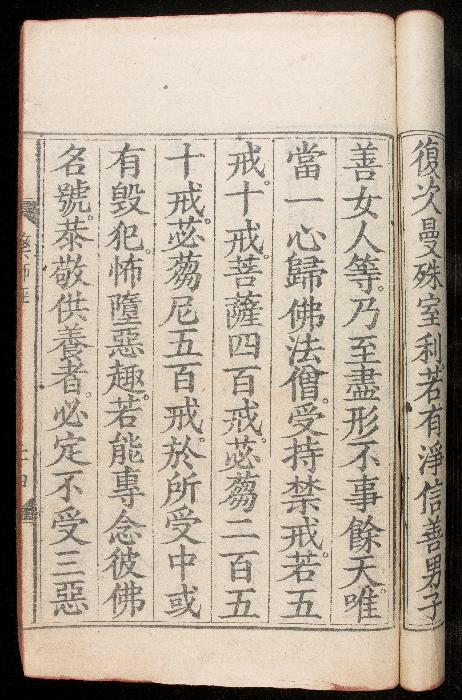 復次曼殊室利若有淨信善男子
善女人等。乃至盡形不事餘天。唯
當一心歸佛法僧。受持禁戒。若五
戒。十戒。菩薩四百戒。苾蒭二百五
十戒。苾蒭尼五百戒。於所受中。或
有毀犯。怖墮惡趣。若能專念彼佛
名號。恭敬供養者。必定不受三惡
藥師